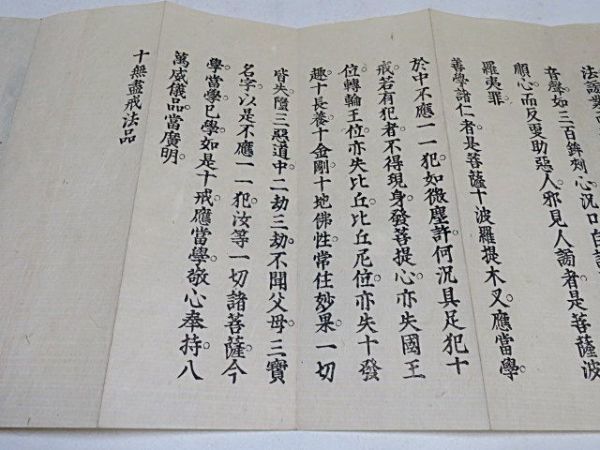 法謗業而
音聲如三百鉾刺心況口自謗
順心而反更助惡人邪見人謗者是菩薩波
羅夷罪
善學諸仁者是菩薩十波羅提木叉應當學
於中不應一一犯如微塵許何況具足犯十
戒若有犯者不得現身發菩提心亦失國王
位轉輪王位亦失比丘比丘尼位亦失十發
趣十長養十金剛十地佛性常住妙果一切
皆失墮三惡道中二劫三劫不聞父母三寶
名字以是不應一一犯汝等一切諸菩薩今
學當學已學如是十戒應當學敬心奉持八
萬威儀品當廣明
十無盡戒法品